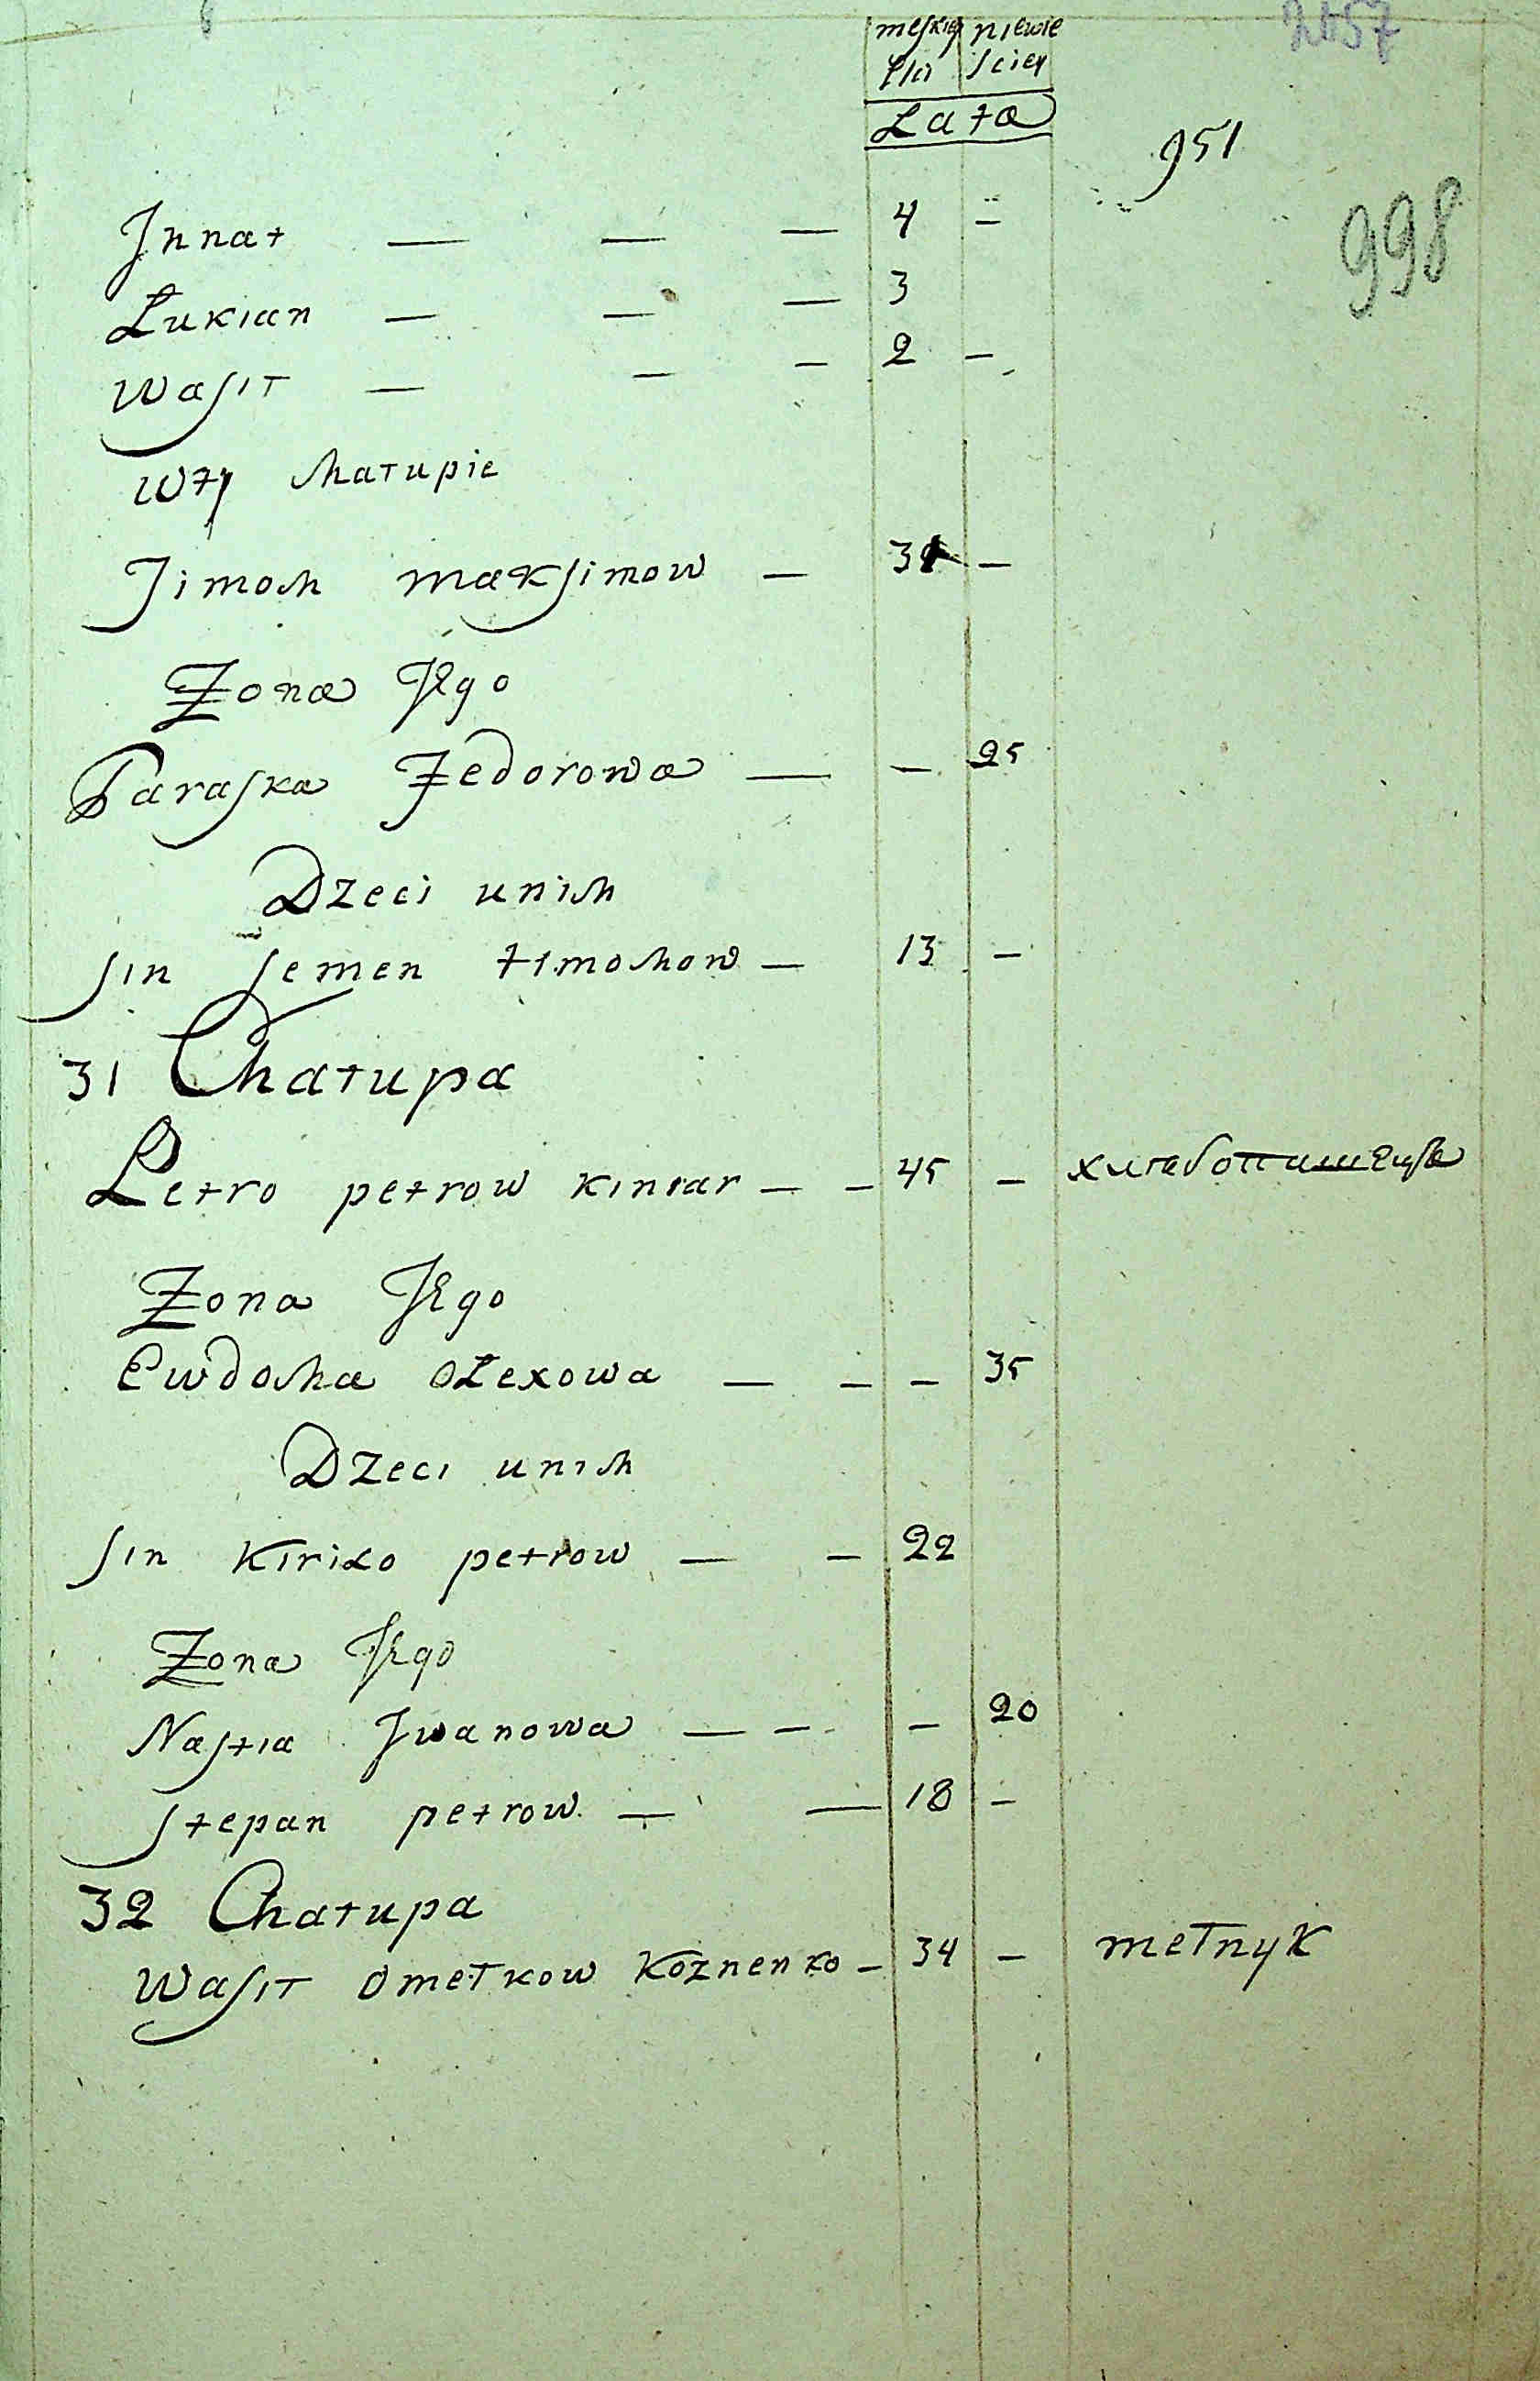 meskiej niewie
płci sciey
Lata
2457
951
998
Jhnat — — — 4 —
Lukian — — — 3
Wasił — — — 2 —
wty chałupie
Timoch maksimow — —
Zona Jego
Paraska Fedorowa — — 25
Dzeci unich
sin semen timochow — 13 —
31 Chałupa
Petro petrow kiniar — — 45 — хлебопашець
Zona Jego
Ewdocha olexowa — — — 35
Dzeci unich
sin kirilo petrow — — 22
Zona Jego
Nastia Jwanowa — — — 20
stepan petrow — — 18 —
32 Chałupa
Wasił omełkow koznenko — 34 — mełnyk